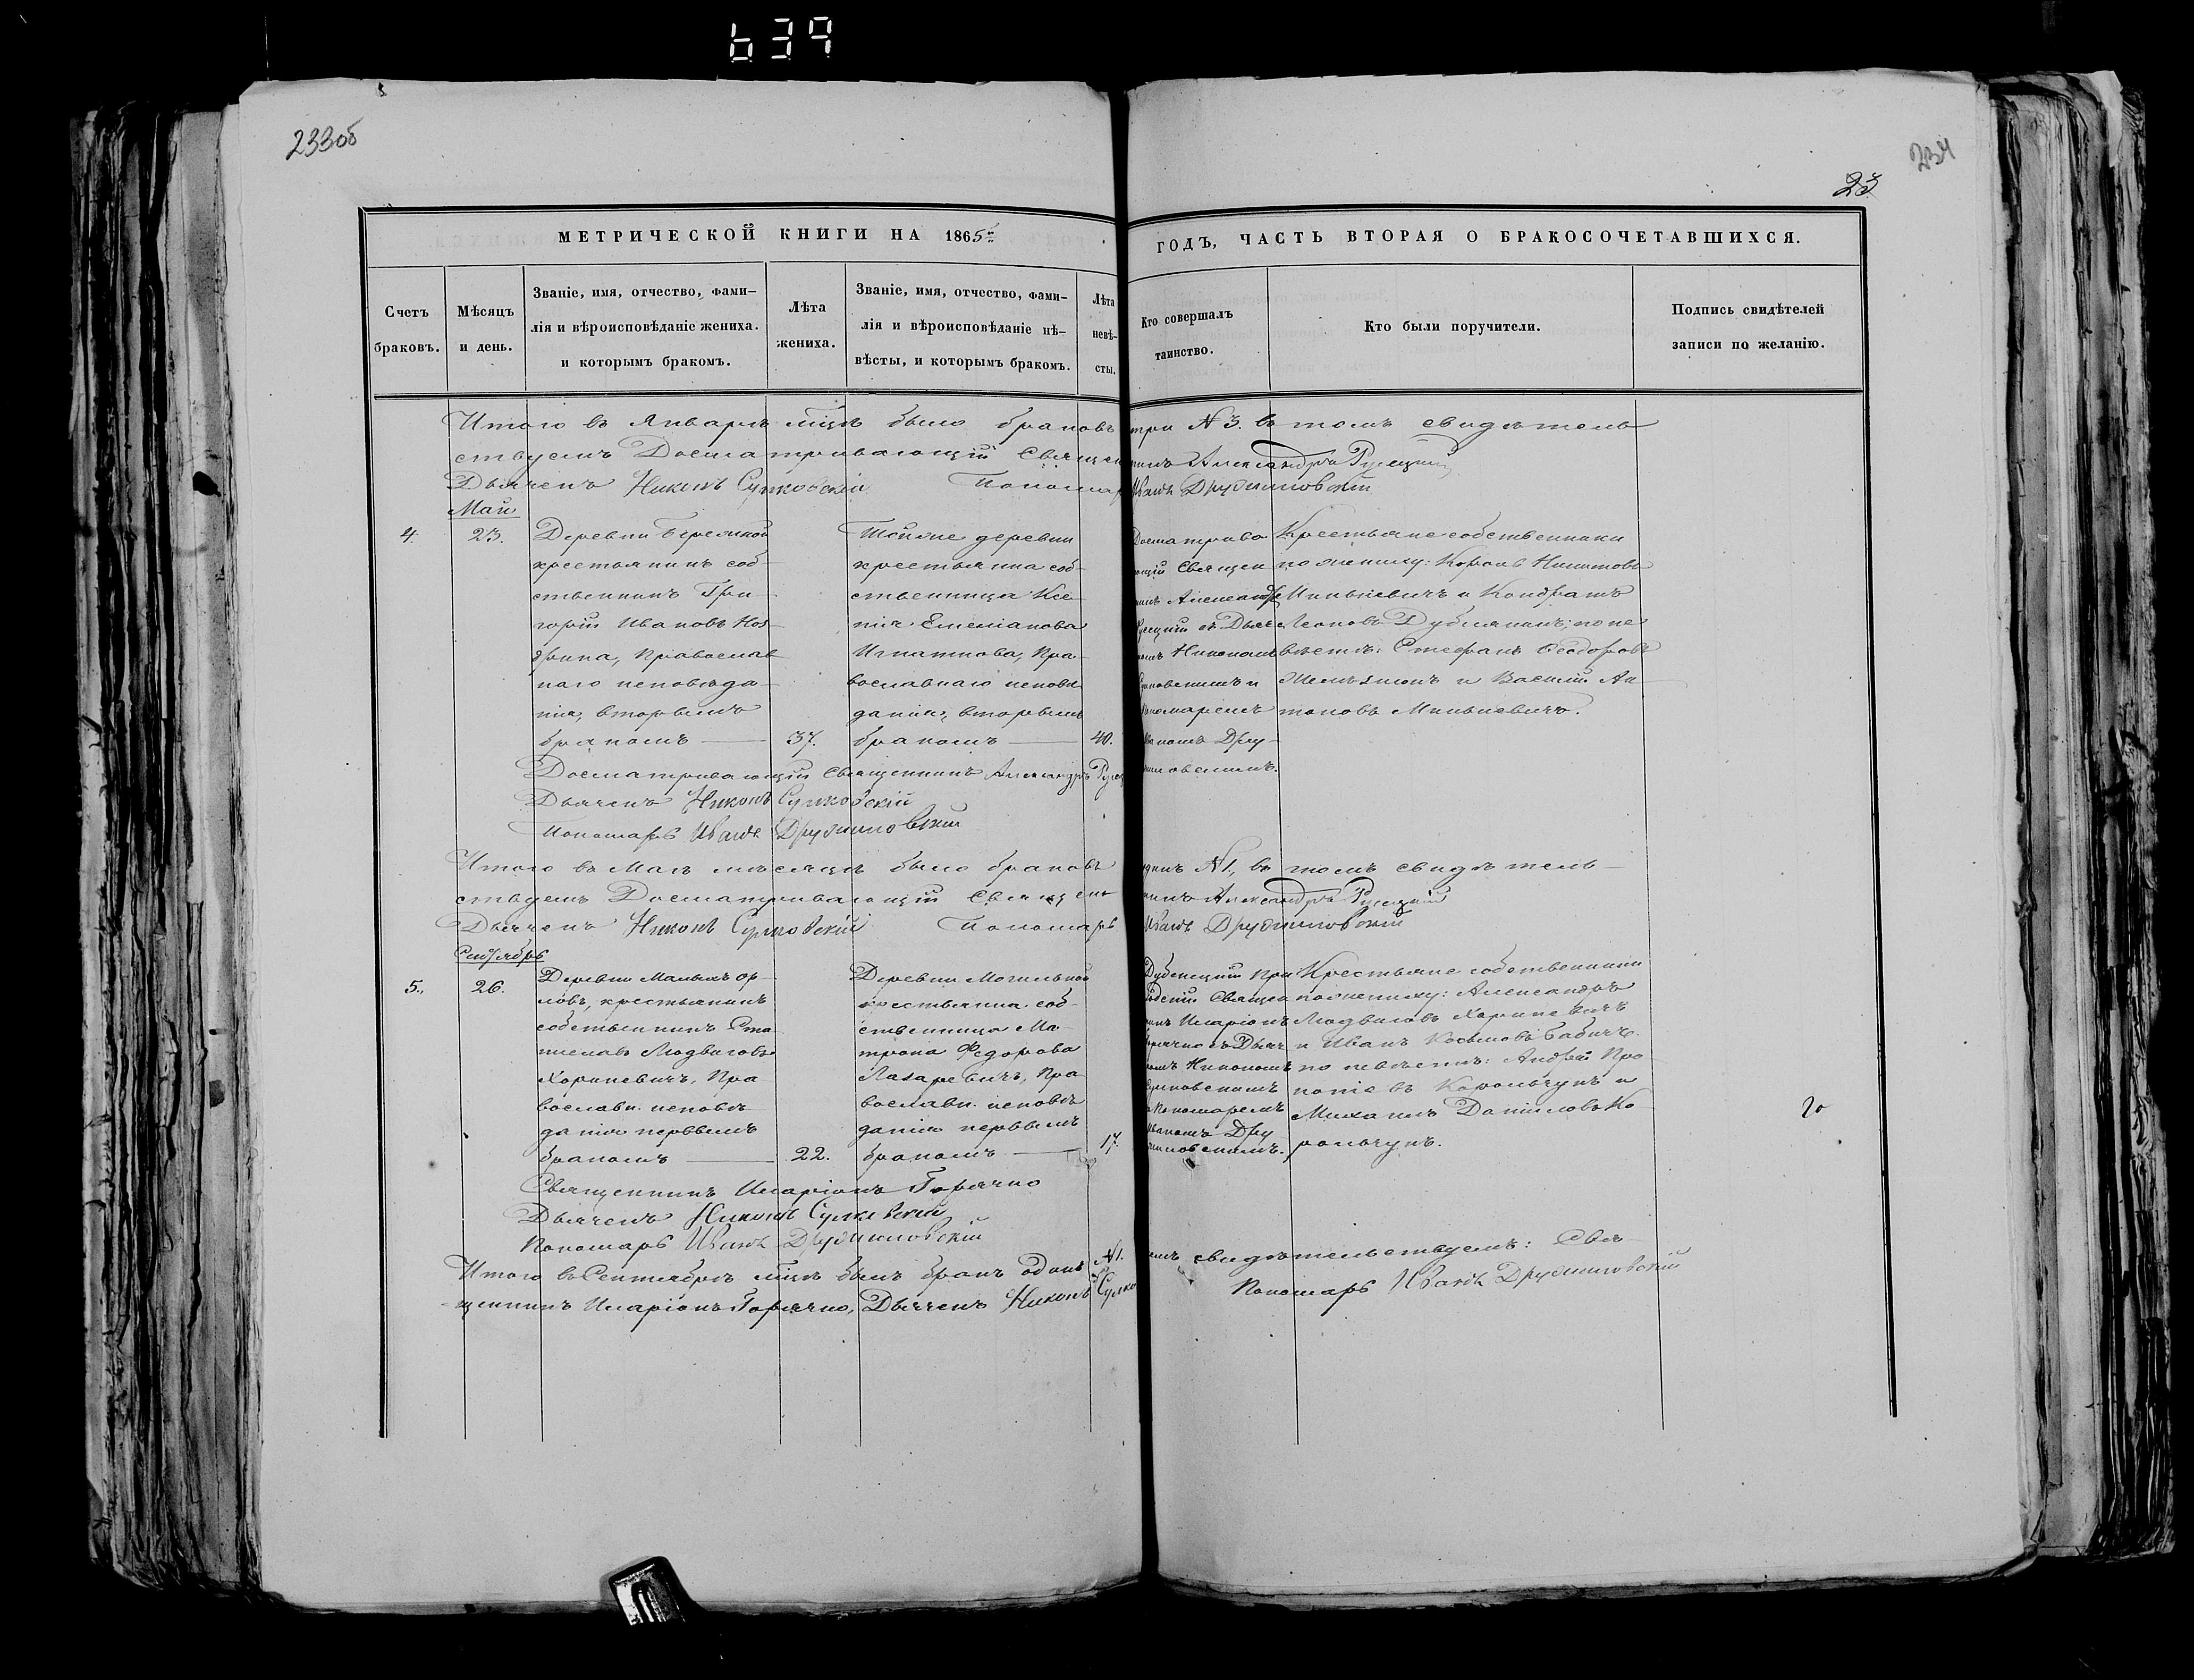 639
233об
234
23
МЕТРИЧЕСКОЙ КНИГИ НА 1865
ГОДЪ, ЧАСТЬ ВТОРАЯ О БРАКОСОЧЕТАВШИХСЯ.
Счетъ браковъ.
Мѣсяцъ и день.
Званіе, имя, отчество, фами-
лія и вѣроисповѣданіе жениха.
и которымъ бракомъ.
Лѣта
жениха.
Званіе, имя, отчество, фами-
лія и вѣроисповѣданіе нѣ-
вѣсты, и которымъ бракомъ.
Лѣта
невѣ-
сты.
Кто совершалъ
таинство.
Кто были поручители.
Подпись свидѣтелей
записи по желанію.
Итого въ Январѣ мцѣ было браковъ три №3. въ томъ свидѣтель
ствуемъ Досматривающій Священ никъ Александръ Русецкій
Дьячекъ Никонъ Сулковскій Пономарь Иванъ Дружиловскій
Май
4. 23.
Деревни
крестьянинъ соб-
ственникъ Гри-
горій Ивановъ
Православ
наго исповѣда-
нія, вторымъ
бракомъ 37.
Тойже деревни
крестьянка соб-
ственница Ксе-
нія Емеліанова
Игнаткова, Пра-
вославнаго исповѣ
данія, вторымъ
бракомъ 40.
Досматрива
ющій Священ
никъ Александръ
Русецкій съ Дьяч
комъ Никономъ
Сулковскимъ и
Пономаремъ
Иваномъ Дру-
жиловскимъ.
Крестьяне собственники
по жениху:
Минькевичъ и Кондратъ
Леоновъ по не
вѣстѣ: Стефанъ Ѳеодоровъ
и Василій Ан-
тоновъ Минькевичъ.
Досматривающій Священникъ Александръ Русец
Дьячекъ Никонъ Сулковскій
Пономарь Иванъ Дружиловскій
Итого въ Маѣ мѣсяцѣ было браковъ одинъ №1., въ томъ свидѣтель-
ствуемъ Досматривающій Священ никъ Александръ Русецкій
Дьячекъ Никонъ Сулковскій Пономарь Иванъ Дружиловскій
Сентябрь
5., 26.
Деревни Малыхъ Ор-
ловъ, крестьянинъ
собственникъ Ста-
ниславъ Людвиговъ
Хориневичъ, Пра-
вославн. исповѣ
данія первымъ
бракомъ 22.
Деревни Могильной
крестьянка соб-
ственница Ма-
трона Ѳедорова
Лазаревичъ, Пра-
вославн. исповѣ
данія первымъ
бракомъ 17.
Дубенецкій При
ходскій Священ
никъ Иларіонъ
Горячко съ Дьяч
комъ Никономъ
Сулковскимъ
и Пономаремъ
Иваномъ Дру
жиловскимъ.
Крестьяне собственники
по жениху: Александръ
Людвиговъ Хориневичъ
и Иванъ Косьмовъ Бабичъ.
по невѣстѣ: Андрей Про
копіевъ Корольчукъ и
Михаилъ Даніиловъ Ко
рольчукъ.
Священникъ Иларіонъ Горячко
Дьячекъ Никонъ Сулковскій
Пономарь Иванъ Дружиловскій
Итого въ Сентябрѣ мцѣ былъ бракъ одинъ №1. въ чемъ свидѣтельствуемъ: Свя-
щенникъ Иларіонъ Горячко, Дьячекъ Никонъ Сулко Пономарь Иванъ Дружиловскій